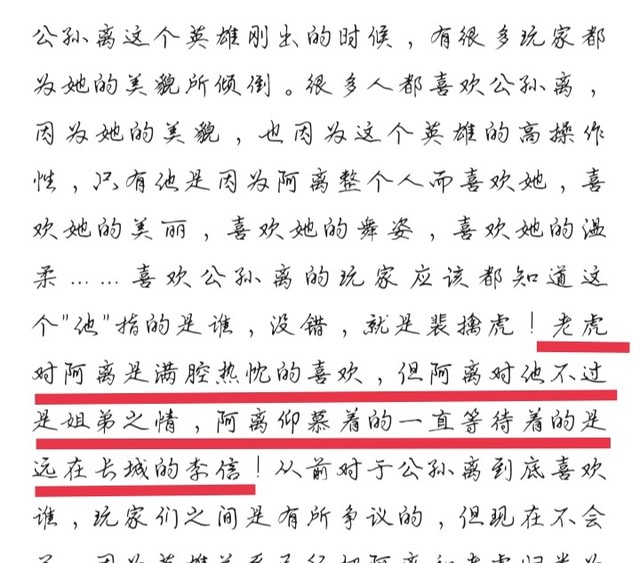 公孙离这个英雄刚出的时候，有很多玩家都
为她的美貌所倾倒。很多人都喜欢公孙离，
因为她的美貌，也因为这个英雄的高操作
性，只有他是因为阿离整个人而喜欢她，喜
欢她的美丽，喜欢她的舞姿，喜欢她的温
柔……喜欢公孙离的玩家应该都知道这
个"他"指的是谁，没错，就是裴擒虎！老虎
对阿离是满腔热忱的喜欢，但阿离对他不过
是姐弟之情，阿离仰慕着的一直等待着的是
远在长城的李信！从前对于公孙离到底喜欢
谁，玩家们之间是有所争议的，但现在不会